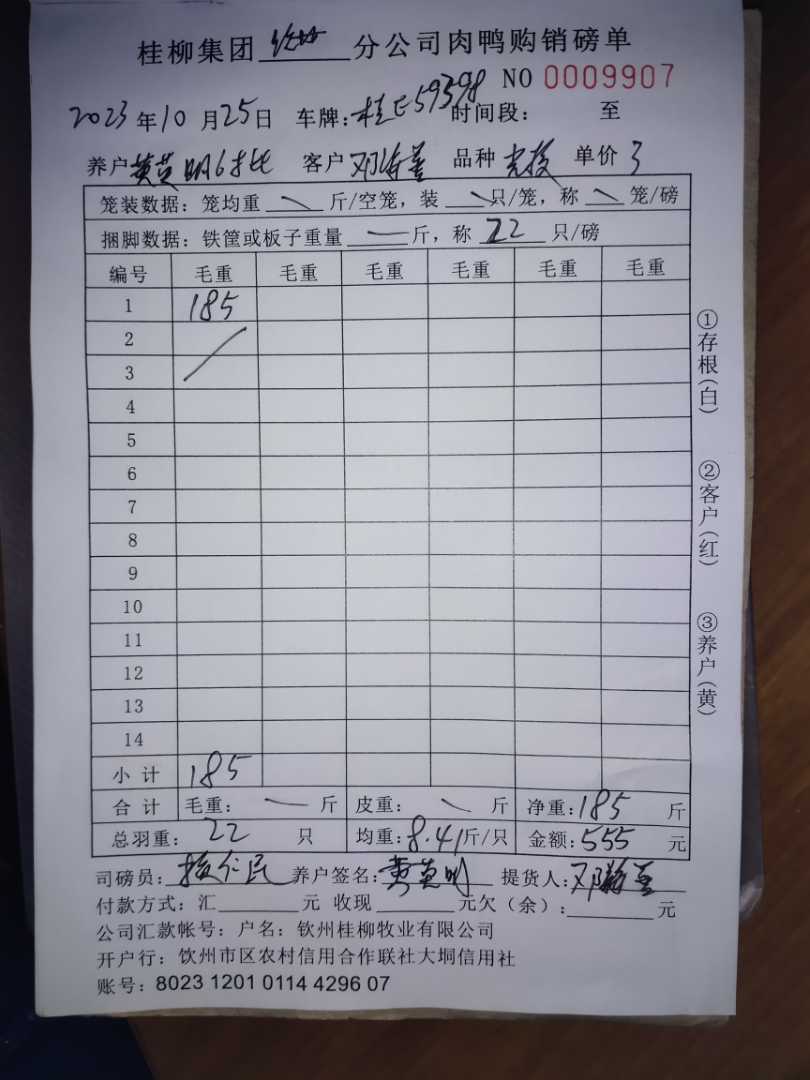 桂柳集团 分公司肉鸭购销磅单
NO 0009907
2023年10月25日 车牌:桂E59398 时间段: 至
养户 黄英明6批 客户 邓 品种 单价 3
笼装数据:笼均重 斤/空笼,装 只/笼,称 笼/磅
捆脚数据:铁筐或板子重量 斤,称 22 只/磅
编号 毛重 毛重 毛重 毛重 毛重 毛重
1 185
2
3
4
5
6
7
8
9
10
11
12
13
14
小计 185
合计 毛重: 斤 皮重: 斤 净重:185 斤
总羽重: 22 只 均重:8.41斤/只 金额:555 元
司磅员: 养户签名:黄英明 提货人:邓
付款方式:汇 元 收现 元欠(余): 元
公司汇款帐号:户名:钦州桂柳牧业有限公司
开户行:钦州市区农村信用合作联社大垌信用社
账号:8023 1201 0114 4296 07
①存根(白) ②客户(红) ③养户(黄)